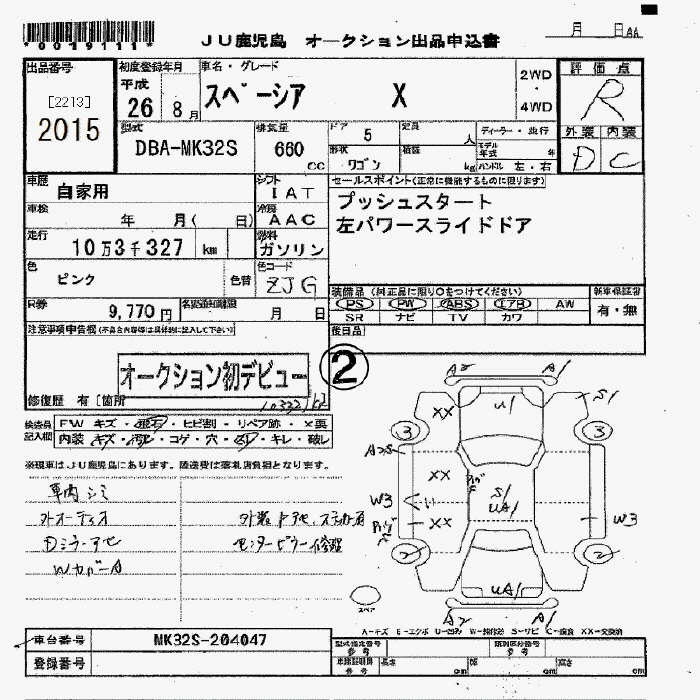 *0019111*
JU鹿児島 オークション出品申込書
月 日
出品番号
[2213]
2015
初度登録年月
平成
26 8月
車名・グレード
スペーシア X
2WD
・
4WD
評価点
R
外装 内装
D C
型式
DBA-MK32S
排気量
660
cc
ドア 5
定員 人
ディーラー・並行
形状 ワゴン
積載 kg
モデル年式 年
ハンドル 左・右
車歴
自家用
シフト
IAT
車検
年 月( 日)
冷房
AAC
走行
10万3千327 km
燃料
ガソリン
色
ピンク
色替
色コード
ZJG
R券
9,770円
名義変更期限
月 日
セールスポイント(正常に機能するものに限ります)
プッシュスタート
左パワースライドドア
装備品(純正品に限り○をつけてください)
PS PW ABS エアB AW
SR ナビ TV カワ
新車保証書
有・無
後日品
注意事項申告欄(不具合内容等は具体的に記入して下さい)
オークション初デビュー
②
修復歴 有〔箇所
検査員
記入欄
FW キズ・飛石・ヒビ割・リペア跡・×要
内装 キズ・汚れ・コゲ・穴・・キレ・破レ
※現車はJU鹿児島にあります。陸送費は落札店負担となります。
車内シミ
外オーディオ
Dミラーアセ
WカバーA
センターピラー修理
A2 A1
S1
XX U1
3 3
A2S
XX
S1
UA1
W3 W3
XX
2 2
UA1
A2 A1
スペア
A-キズ E-エクボ U-凹み W-補修跡 S-サビ C-腐食 XX-交換済
車台番号 MK32S-204047
登録番号
型式指定番号
参考
類別区分番号
参考
車庫証明用
参考
長さ cm
幅 cm
高さ cm